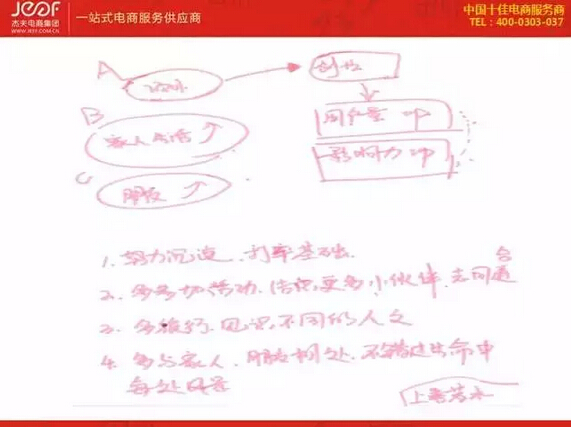 JEOF
杰夫电商集团
WWW.JEOF.COM.CN
一站式电商服务供应商
中国十佳电商服务商
TEL：400-0303-037
A
创业
B
家人生活
用户量 up
影响力 up
C
朋友
1. 努力沉淀、打牢基础.
2. 多参加活动、结识更多小伙伴、志同道合
3. 多旅行、见识不同的人文
4. 多与家人、朋友相处、不错过生命中
每处风景
上善若水